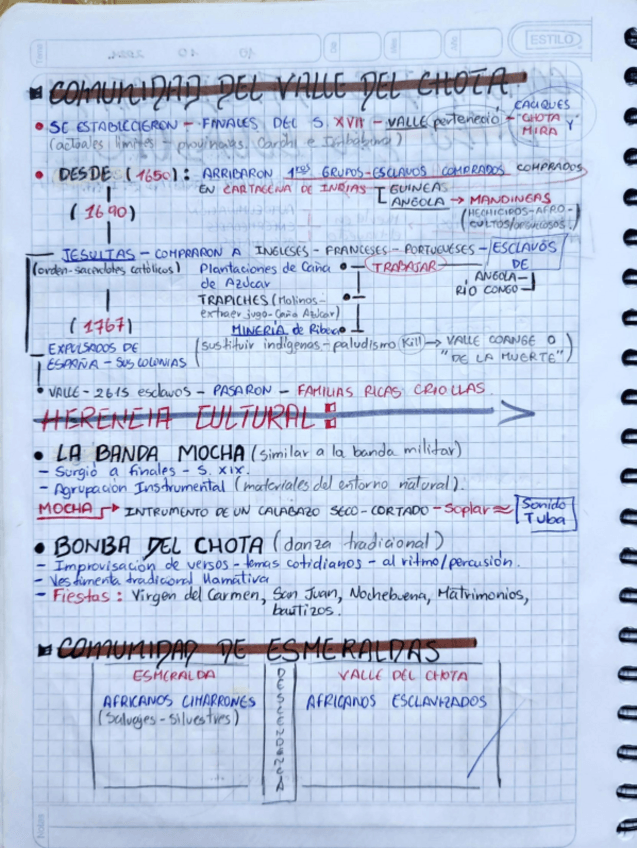 ESTILO
■ COMUNIDAD DEL VALLE DEL CHOTA
• SE ESTABLECIERON - FINALES DEL S. XVII - VALLE perteneció - CACIQUES "CHOTA Y MIRA"
(actuales límites - provincias. Carchi e Imbabura)
• DESDE (1650): ARRIBARON 1ros GRUPOS-ESCLAVOS COMPRADOS COMPRADOS
EN CARTAGENA DE INDIAS GUINEAS
ANGOLA → MANDINGAS
(1690)
(HECHICEROS-AFRO-
CULTOS/
JESUITAS - COMPRARON A INGLESES - FRANCESES - PORTUGUESES - ESCLAVOS DE
(orden-sacerdotes católicos) Plantaciones de Caña de Azúcar • TRABAJAR
ANGOLA
RÍO CONGO
TRAPICHES (Molinos-
extraer jugo-Caña Azúcar)
(1767)
MINERÍA de Riboa
EXPULSADOS DE
ESPAÑA - SUS COLONIAS
(sustituir indígenas - paludismo (Kill) → VALLE COANGE O
"DE LA MUERTE")
• VALLE - 2615 esclavos - PASARON - FAMILIAS RICAS CRIOLLAS.
HERENCIA CULTURAL:
• LA BANDA MOCHA (similar a la banda militar)
- Surgió a finales - S. XIX.
- Agrupación Instrumental (materiales del entorno natural).
MOCHA → INTRUMENTO DE UN CALABAZO SECO - CORTADO - Soplar ≈ Sonido Tuba
• BONBA DEL CHOTA (danza tradicional)
- Improvisación de versos - temas cotidianos - al ritmo/percusión.
- Vestimenta tradicional llamativa
- Fiestas: Virgen del Carmen, San Juan, Nochebuena, Matrimonios,
bautizos.
■ COMUNIDAD DE ESMERALDAS
ESMERALDA
AFRICANOS CIMARRONES
(Salvajes - Silvestres)
DESCENDENCIA
VALLE DEL CHOTA
AFRICANOS ESCLAVIZADOS
Notes